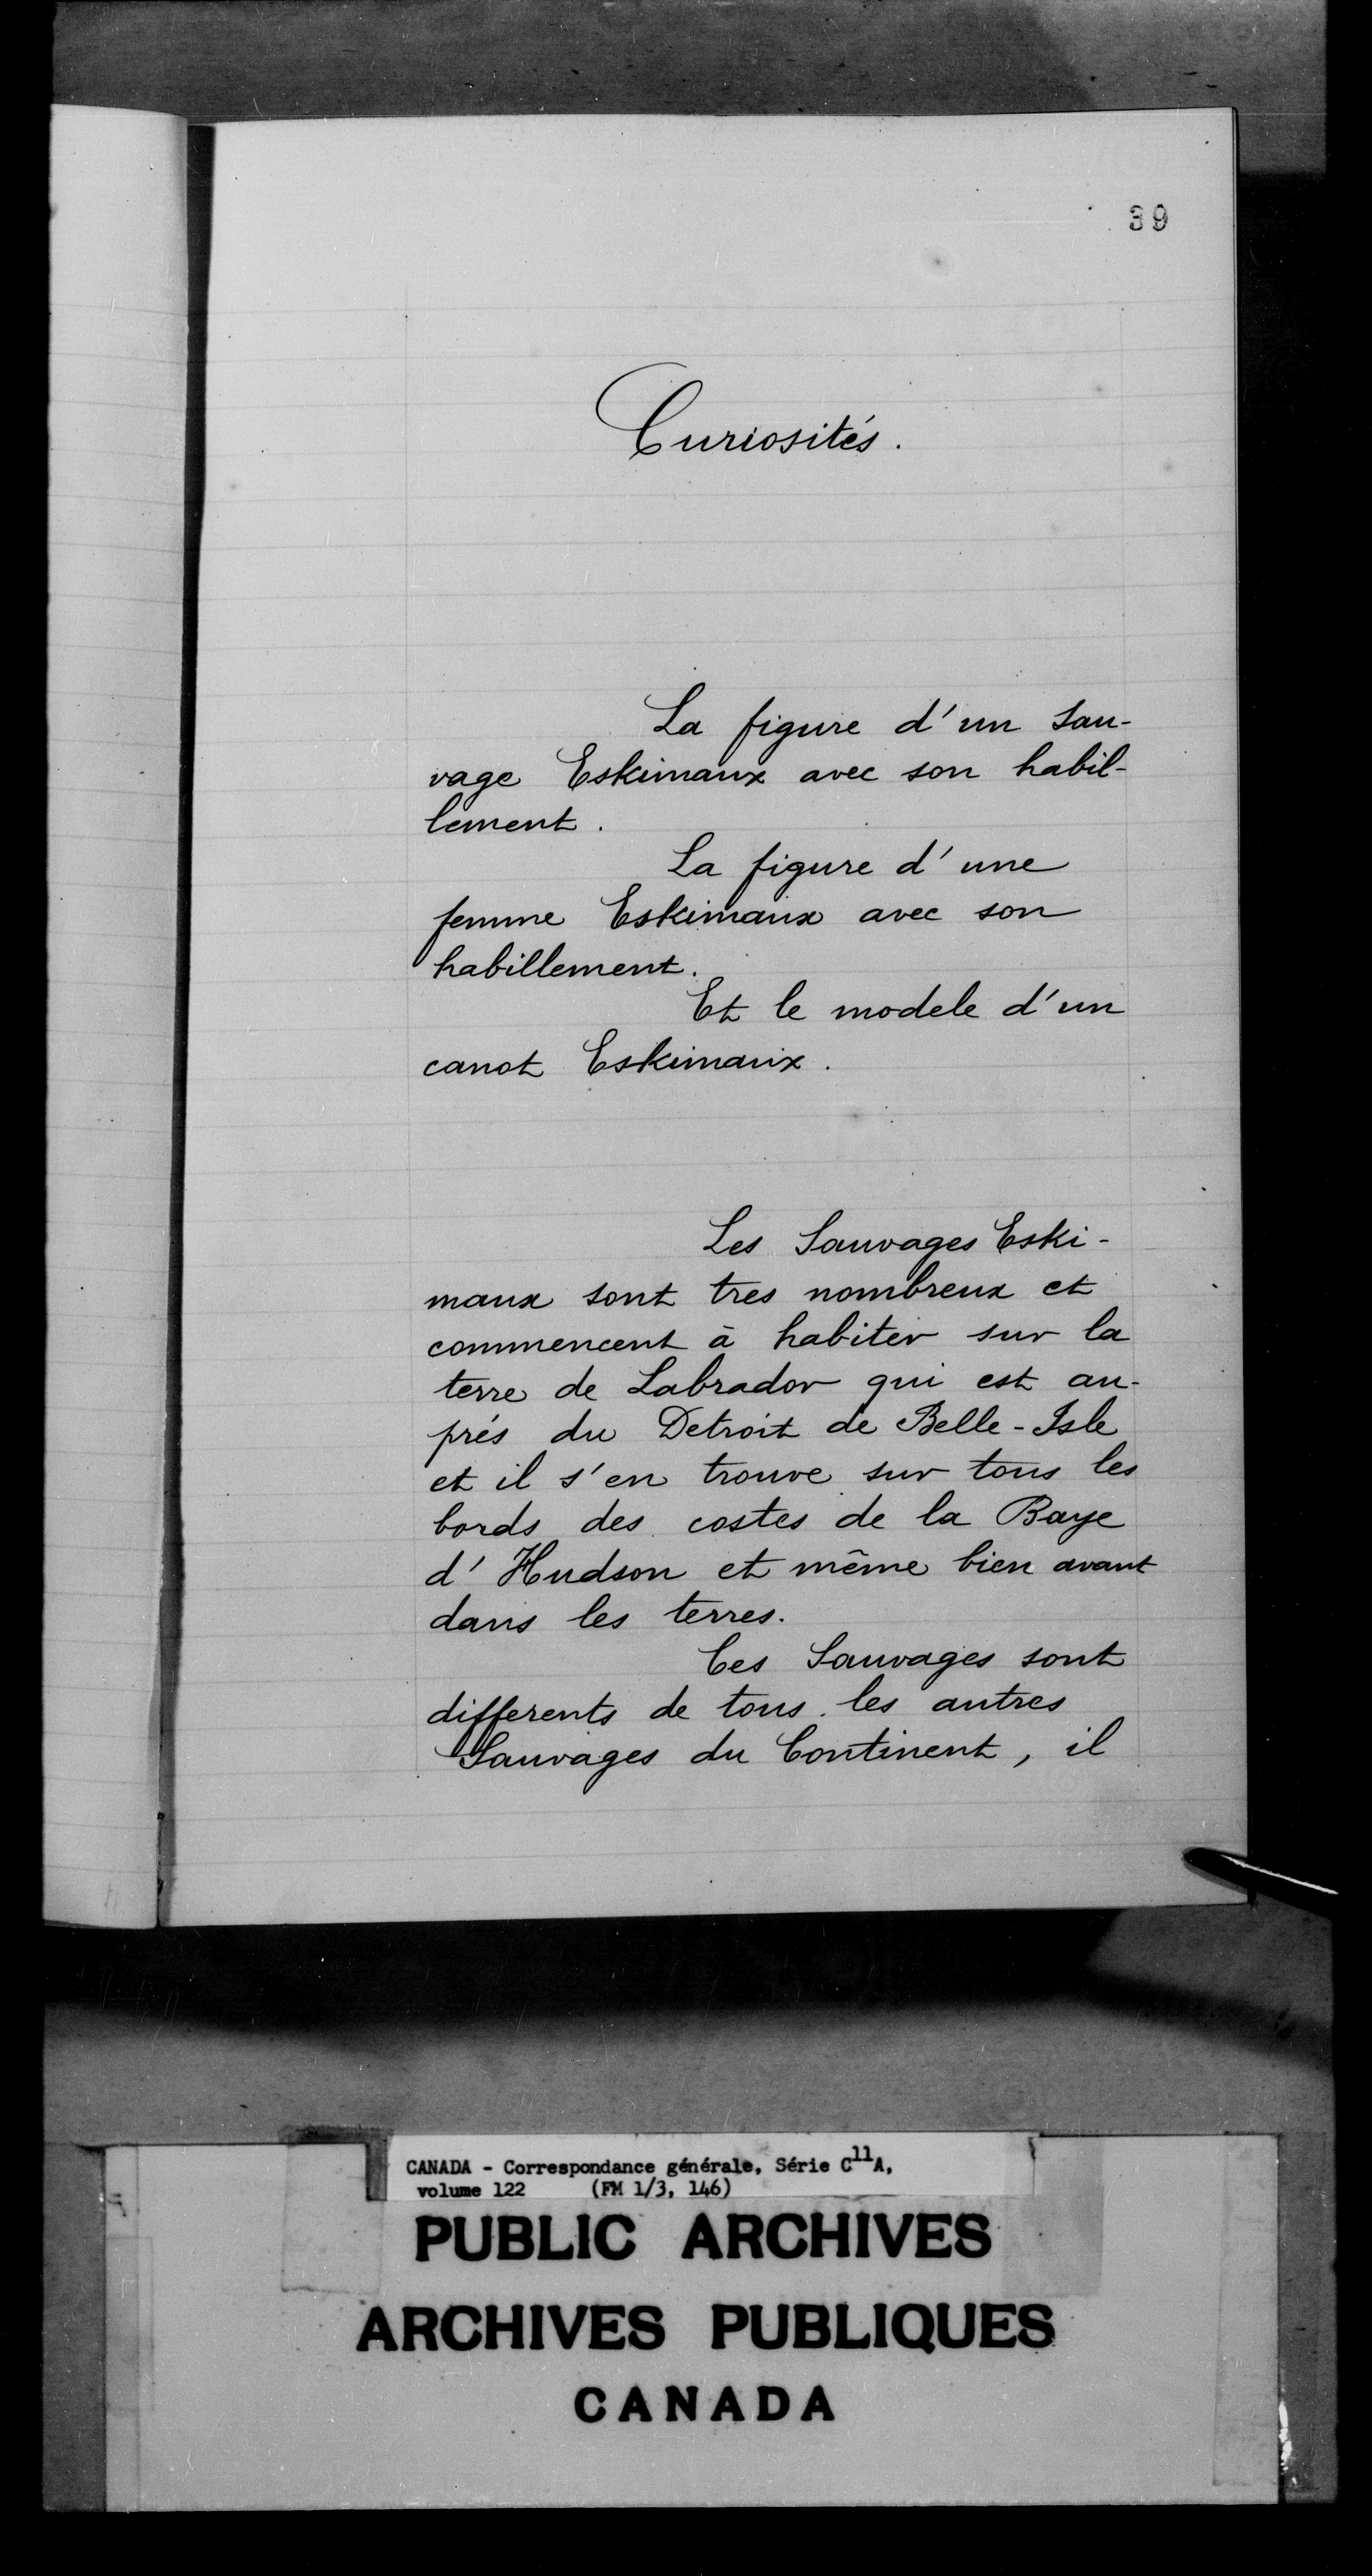 39
Curiosités.
La figure d'un Sau-
vage Eskimaux avec son habil-
lement.
La figure d'une
femme Eskimaux avec son
habillement.
Et le modele d'un
canot Eskimaux.
Les Sauvages Eski-
maux sont tres nombreux et
commencent à habiter sur la
terre de Labrador qui est au-
prés du Detroit de Belle-Isle
et il s'en trouve sur tous les
bords des costes de la Baye
d'Hudson et même bien avant
dans les terres.
Ces Sauvages sont
differents de tous les autres
Sauvages du Continent, il
CANADA - Correspondance générale, Série C11A,
volume 122 (FM 1/3, 146)
PUBLIC ARCHIVES
ARCHIVES PUBLIQUES
CANADA